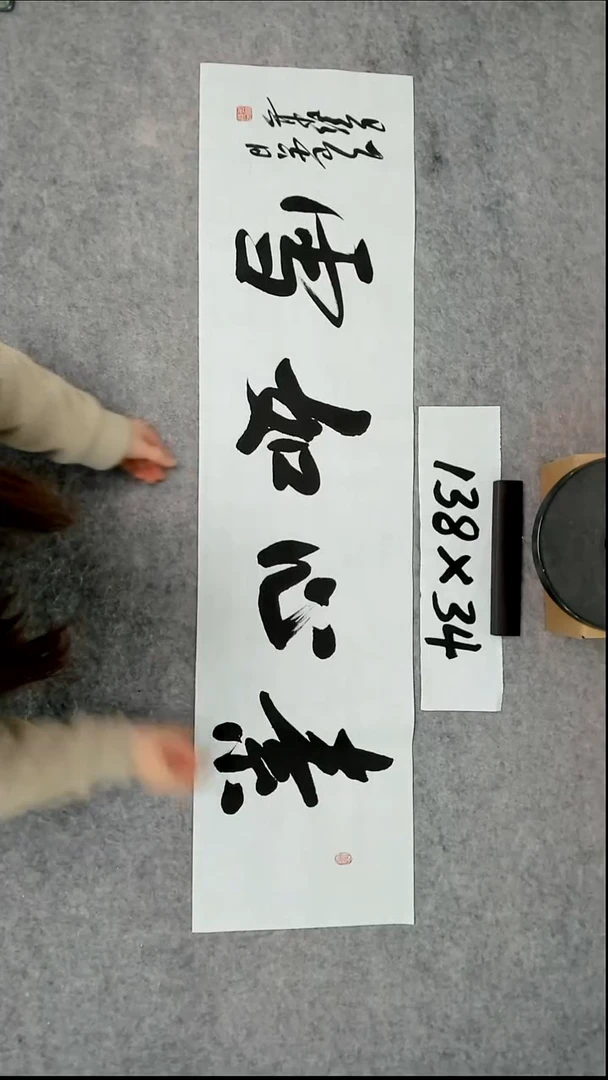 素心如雪
138×34